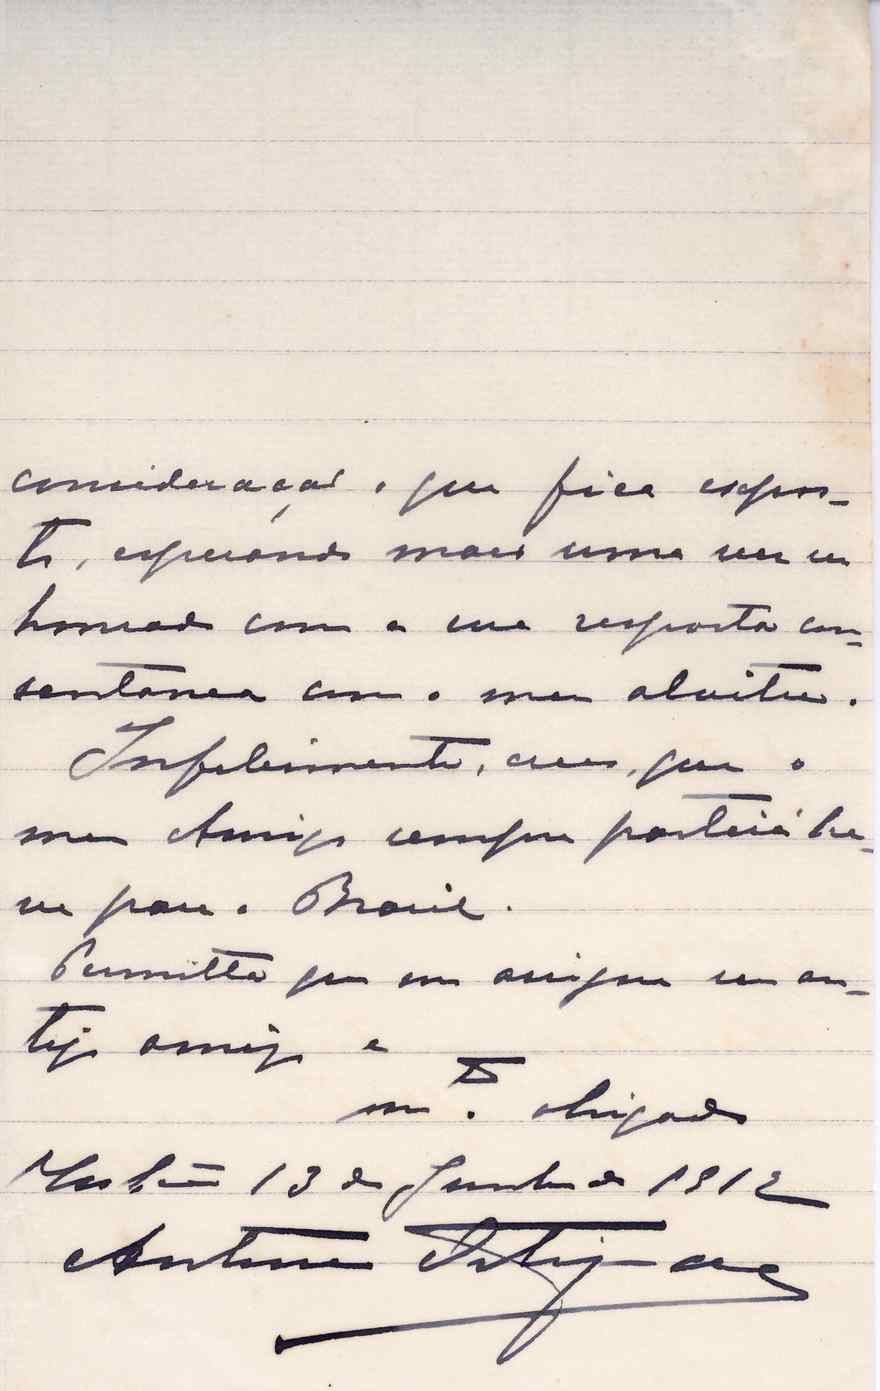 consideração o que fica expos-
to, esperando mais uma vez ser
honrado com a sua resposta con-
sentanea com o meu alvitre.
Infelizmente, creio, que o
meu Amigo sempre partirá bre-
ve para o Brazil.
Permitta que me assigne seu an-
tigo amigo e
m.to obrigado
13 de Junho de 1912
Antonio